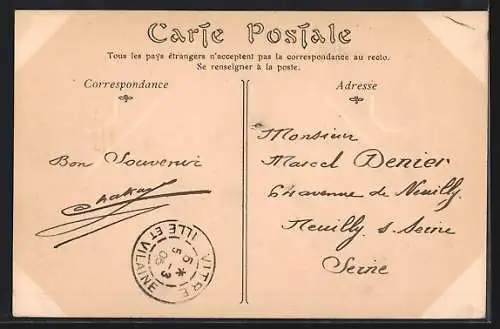 Carte Postale
Tous les pays étrangers n'acceptent pas la correspondance au recto.
Se renseigner à la poste.
Correspondance
Bon Souvenir
VITRE
ILLE ET VILAINE
5 - 3
Adresse
Monsieur
Marcel Denier
64 avenue de Neuilly
Neuilly s. Seine
Seine